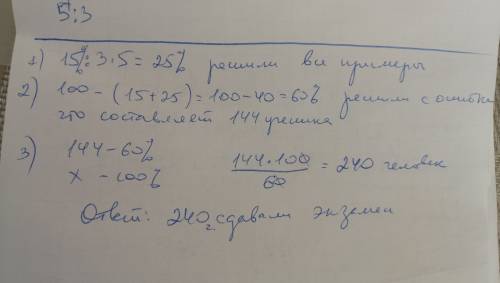 5:3
1) 15%:3·5=25% решили все примеры
2) 100-(15+25)=100-40=60% решили с ошибк
что составляет 144 ученика
3) 144-60%
х -100%
144·100
60
= 240 человек
Ответ: 240 г. сдавали экзамен